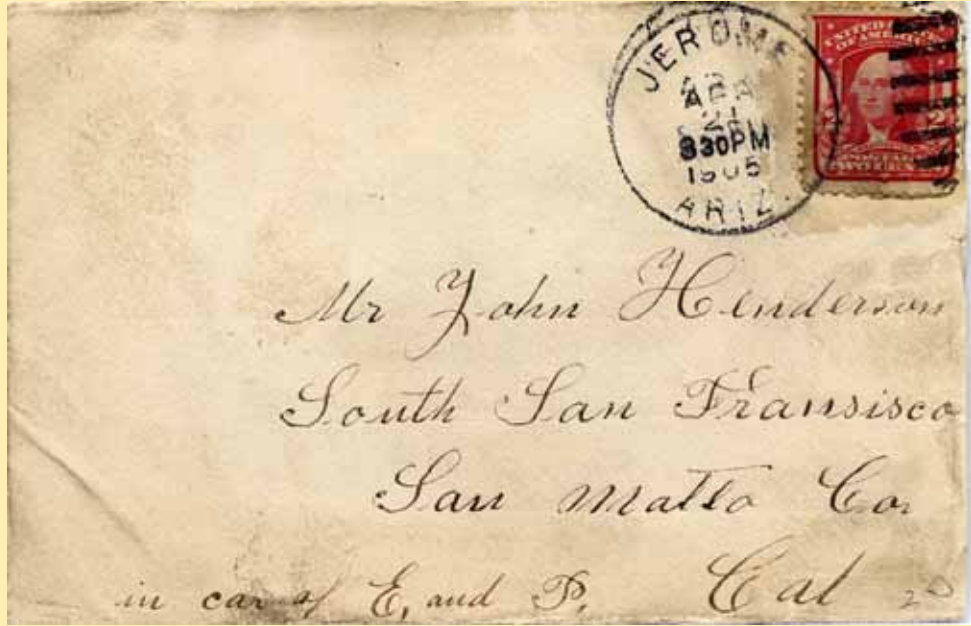 JEROME
APR
21
830PM
1905
ARIZ.
UNITED STATES
OF AMERICA
2
POSTAGE
TWO CENTS
Mr John Henderson
South San Fransisco
San Matto Co.
in car of E, and P. Cal